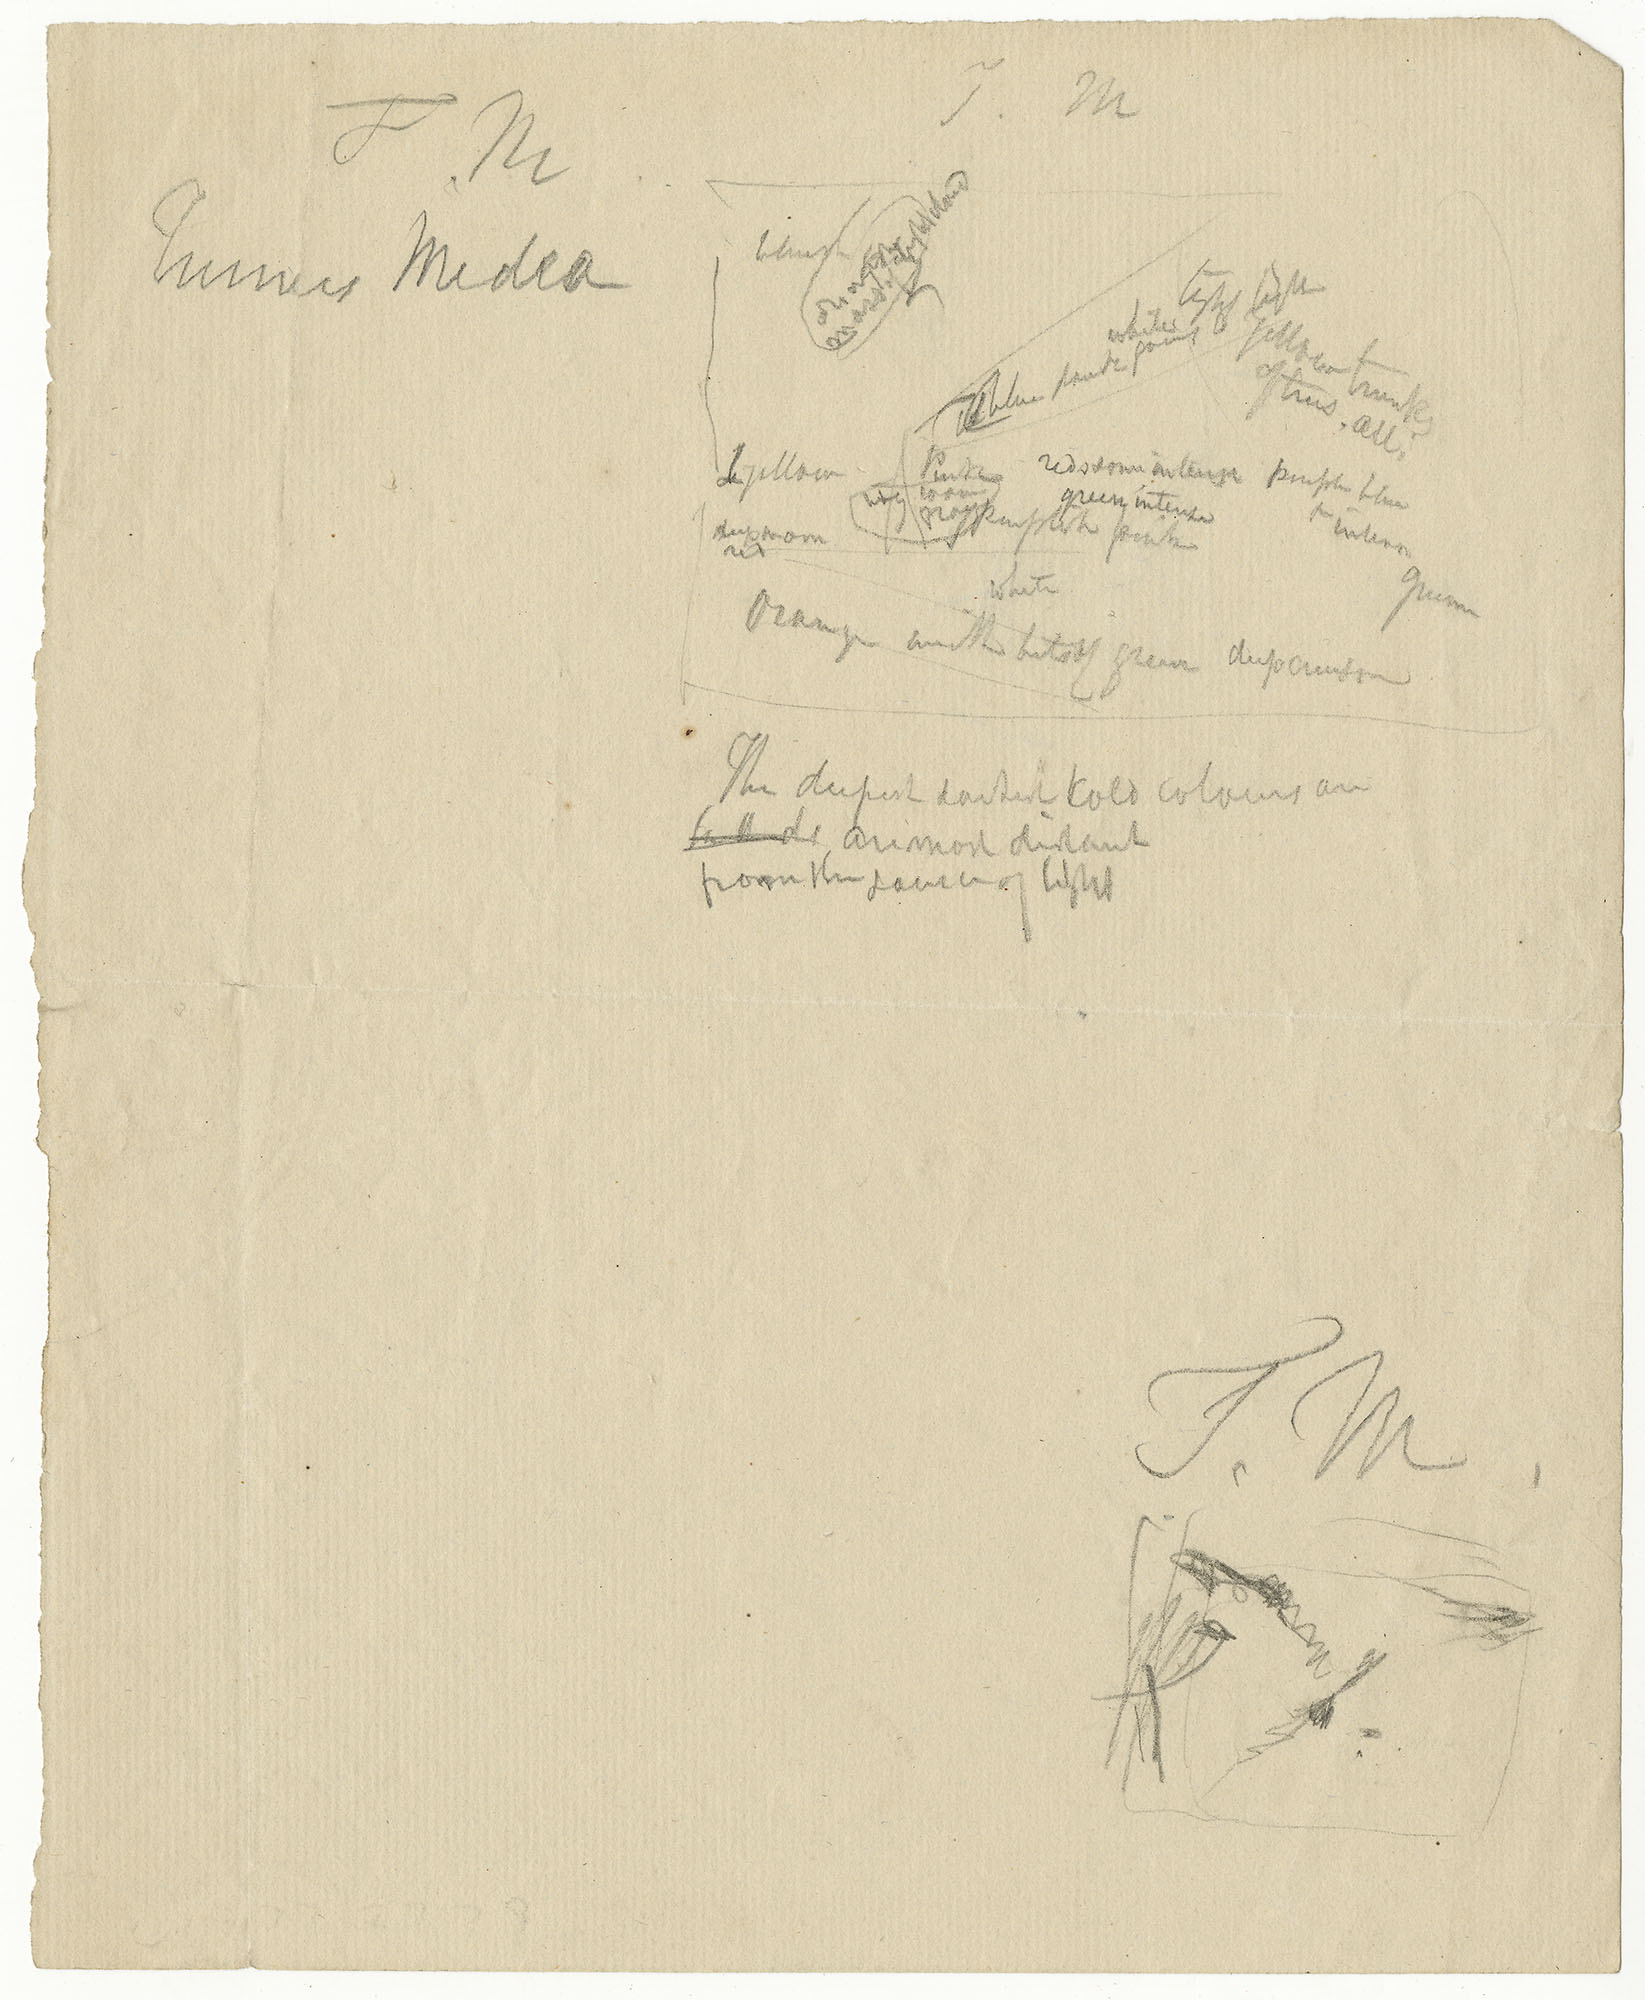 T. M
T. M
Turners Medea
bluish
light light
yellow trunks
of trees. all.
white
blue
yellow
Pink
warm
reds some intense
purple blue
green intense
purplish pink
intense
deep warm
red
white
green
Orange with bits of green deep crimson
The deepest darkest cold colours are
are most distant
from the source of light
T. M.